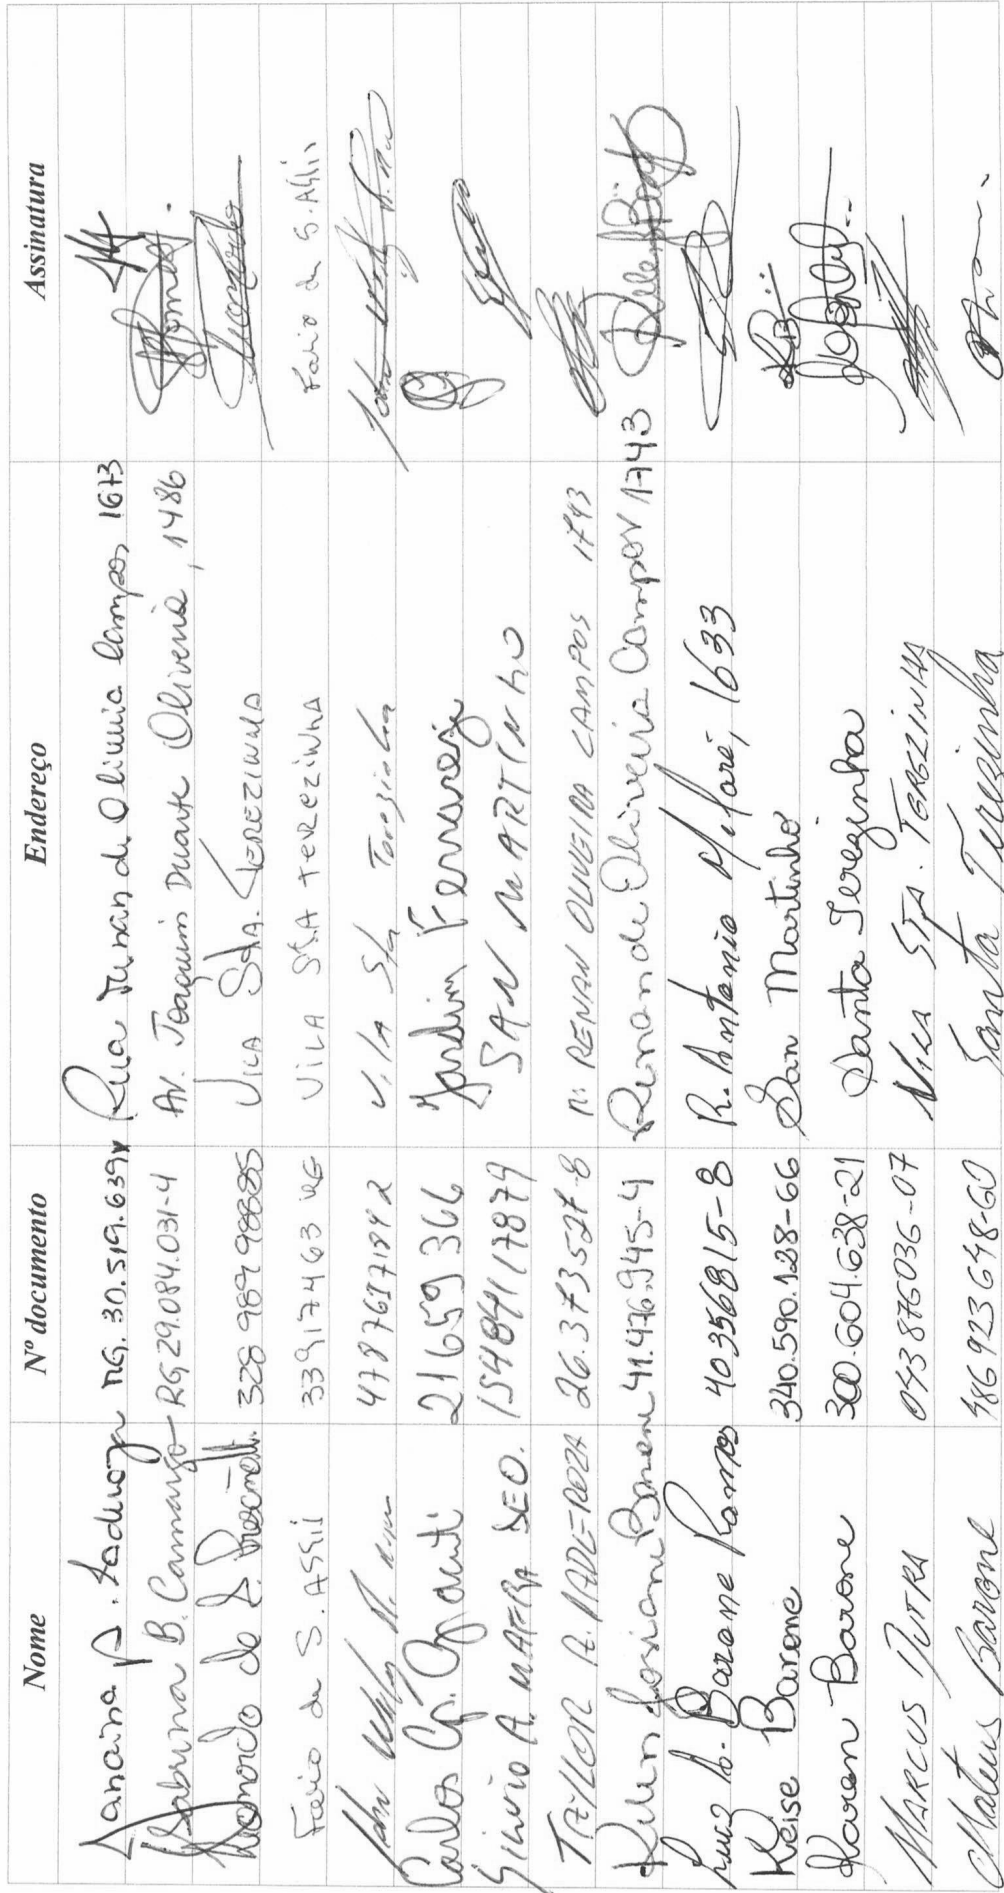 Nome Nº documento Endereço Assinatura
Janaina RG. 30.519.639x Rua Renan de Oliveira Campos 1673
Sabrina B. Camargo RG 29.084.031-4 Av. Joaquim Duarte Oliveria, 1486
328 989 98885 VILA Sta. TEREZINHA
Fabio de S. Assis 33917463 RG VILA StA TEREZINHA Fabio de S. Assis
47876171892 Vila Sta Terezinha
Carlos 21659366 Jardim Ferrarezi
SILVIO A. MAFRA DEO. 15484117879 SAN MARTINHO
TAYLOR A. 26.373527-8 R: RENAN OLIVEIRA CAMPOS 1743
Kellen Josiane Barone 41.476.945-4 Renan de Oliveira Campos 1743
Luiz A. Barone Ramos 40356815-8 R. Antonio 1633
Keise Barone 340.590.128-66 San Martinho
Karen Barone 300.604.638-21 Santa Terezinha
MARCUS DUTRA 043876036-07 VILA STA. TEREZINHA
Mateus Barone 486923648-60 Santa Teresinha